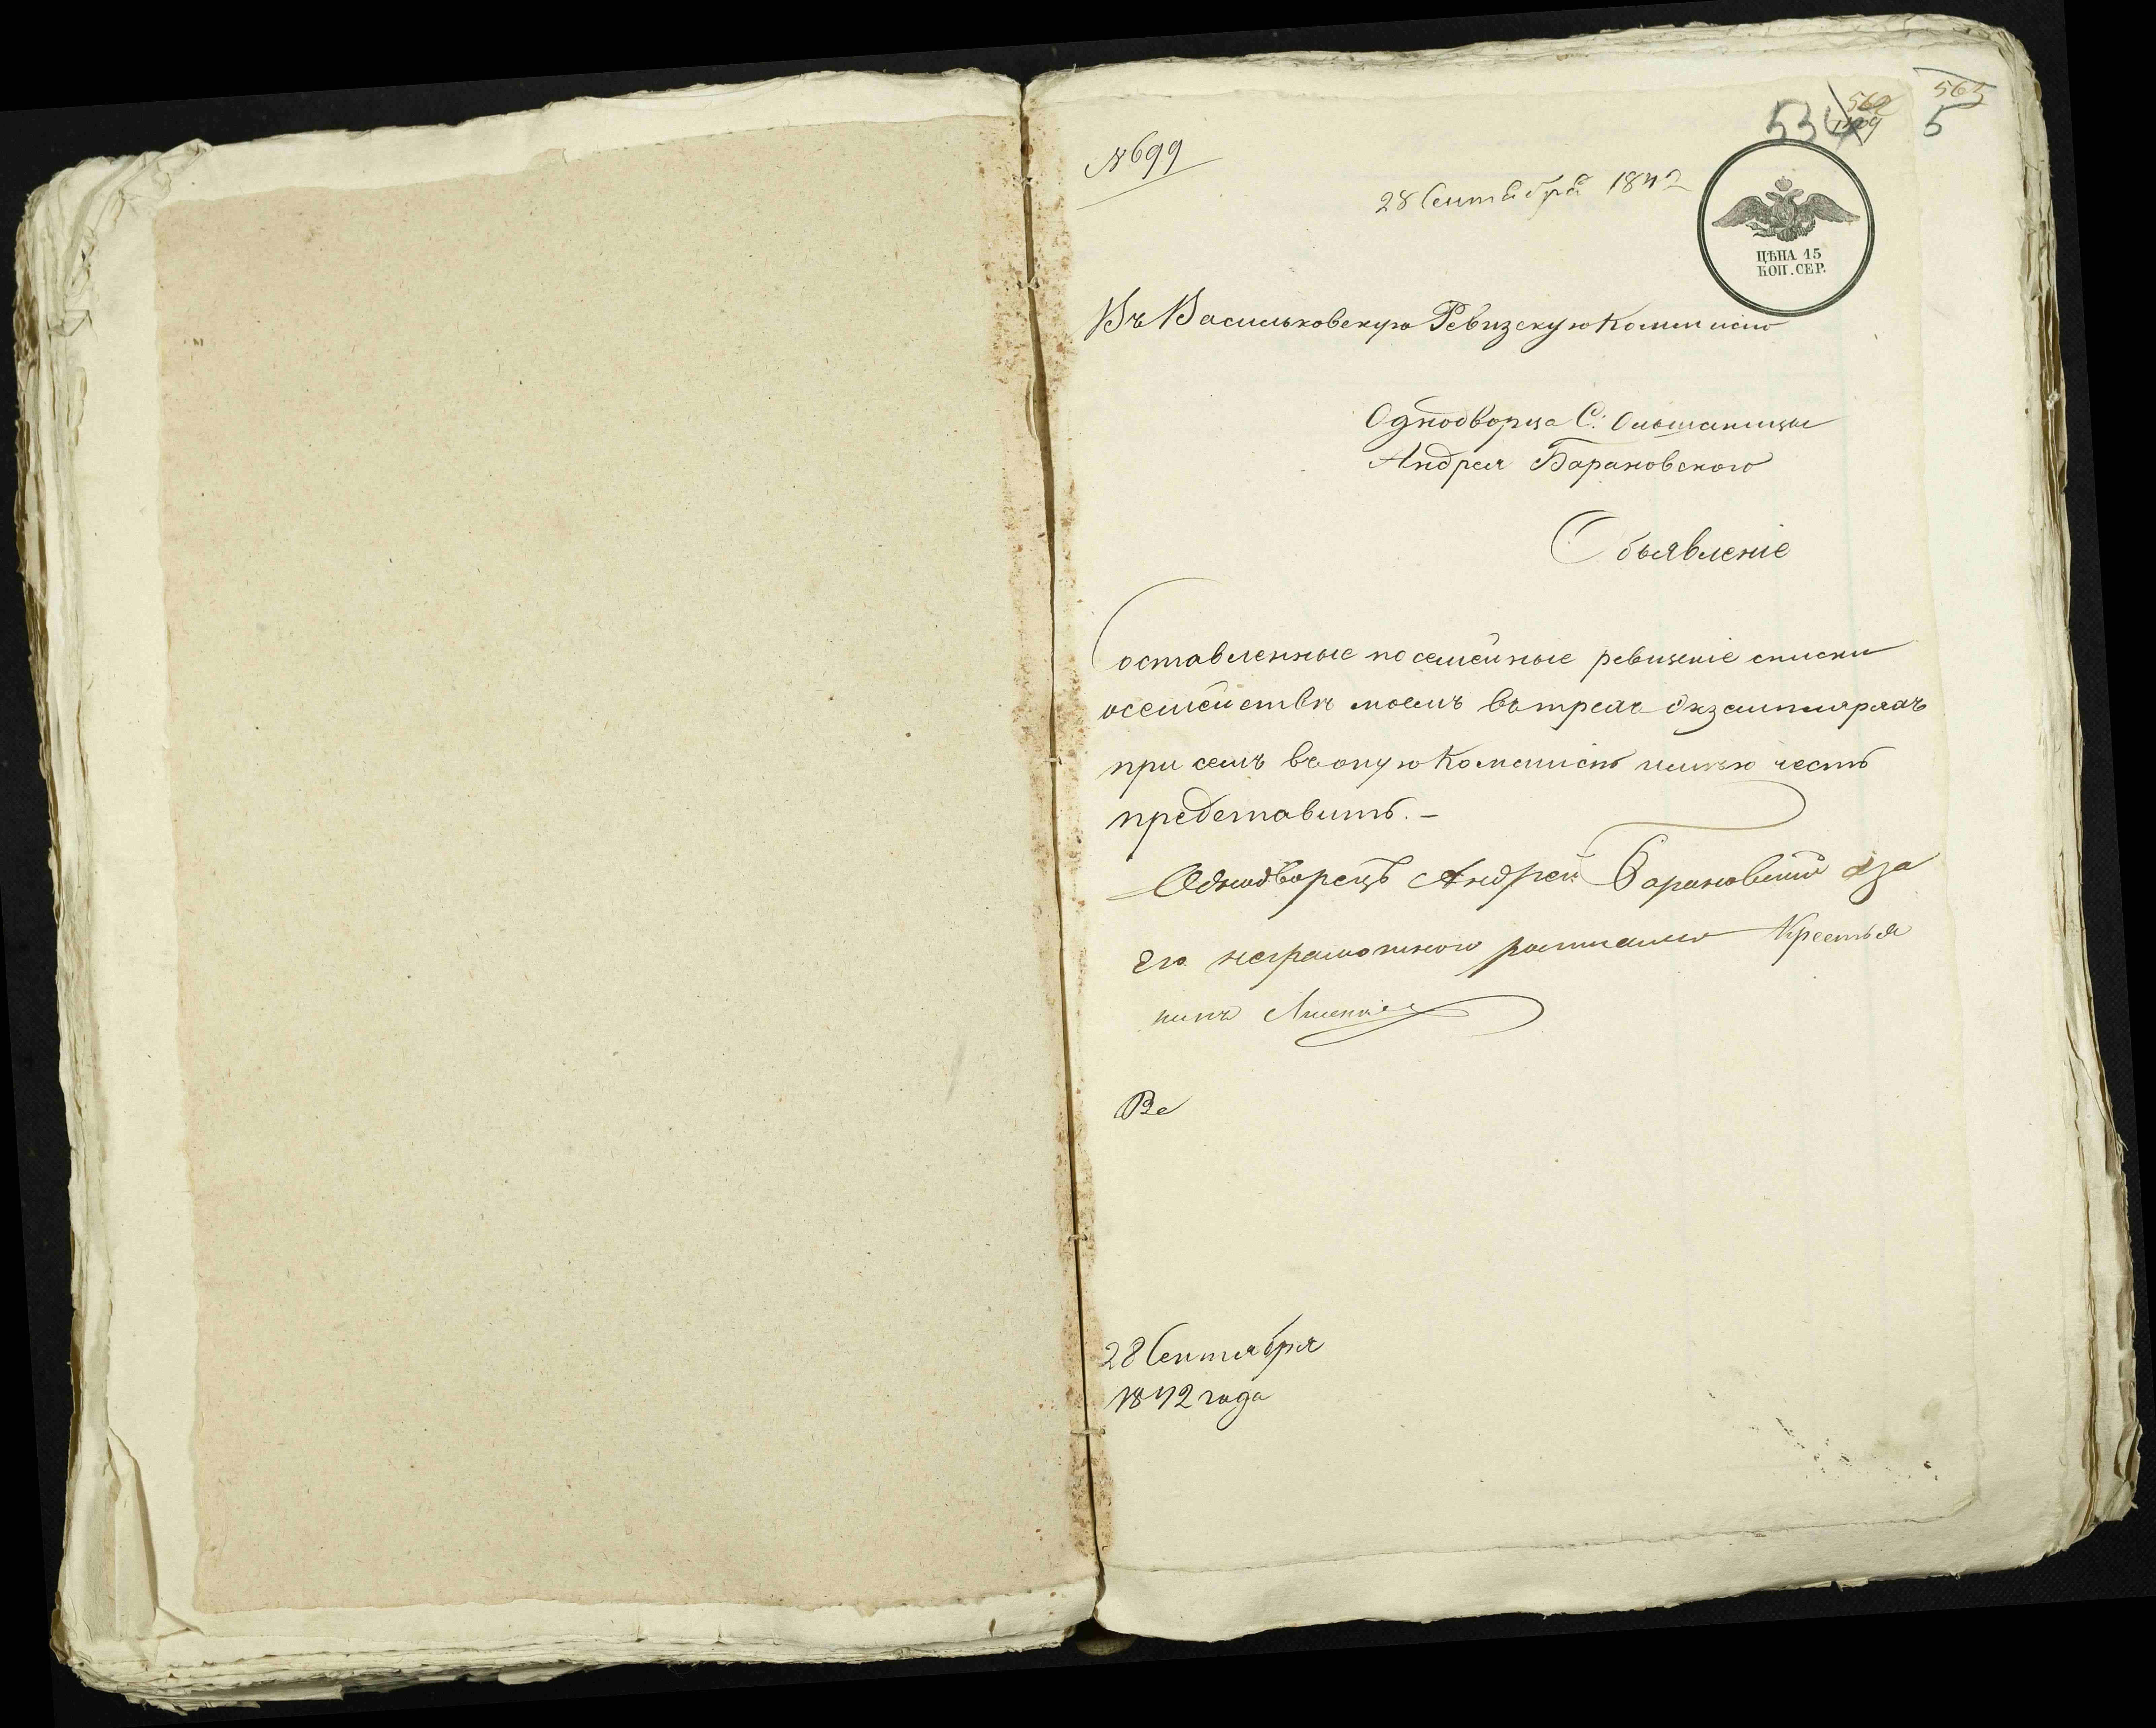 565
5
534
№ 699
28 Сентября 1842
ЦѢНА 15
КОП. СЕР.
Въ Васильковскую Ревизскую Коммисію
Однодворца С. Ольшаницы
Андрея Барановского
Объявленіе
Составленные посемейные ревизскіе списки
осемействѣ моемъ вътрехъ экземплярахъ
при семъ въоную Коммисію имѣю честь
представить. –
Однодворецъ Андрей Барановский аза
Его неграмотного росписался Крестья
нинъ
Ве
28 Сентября
1842 года